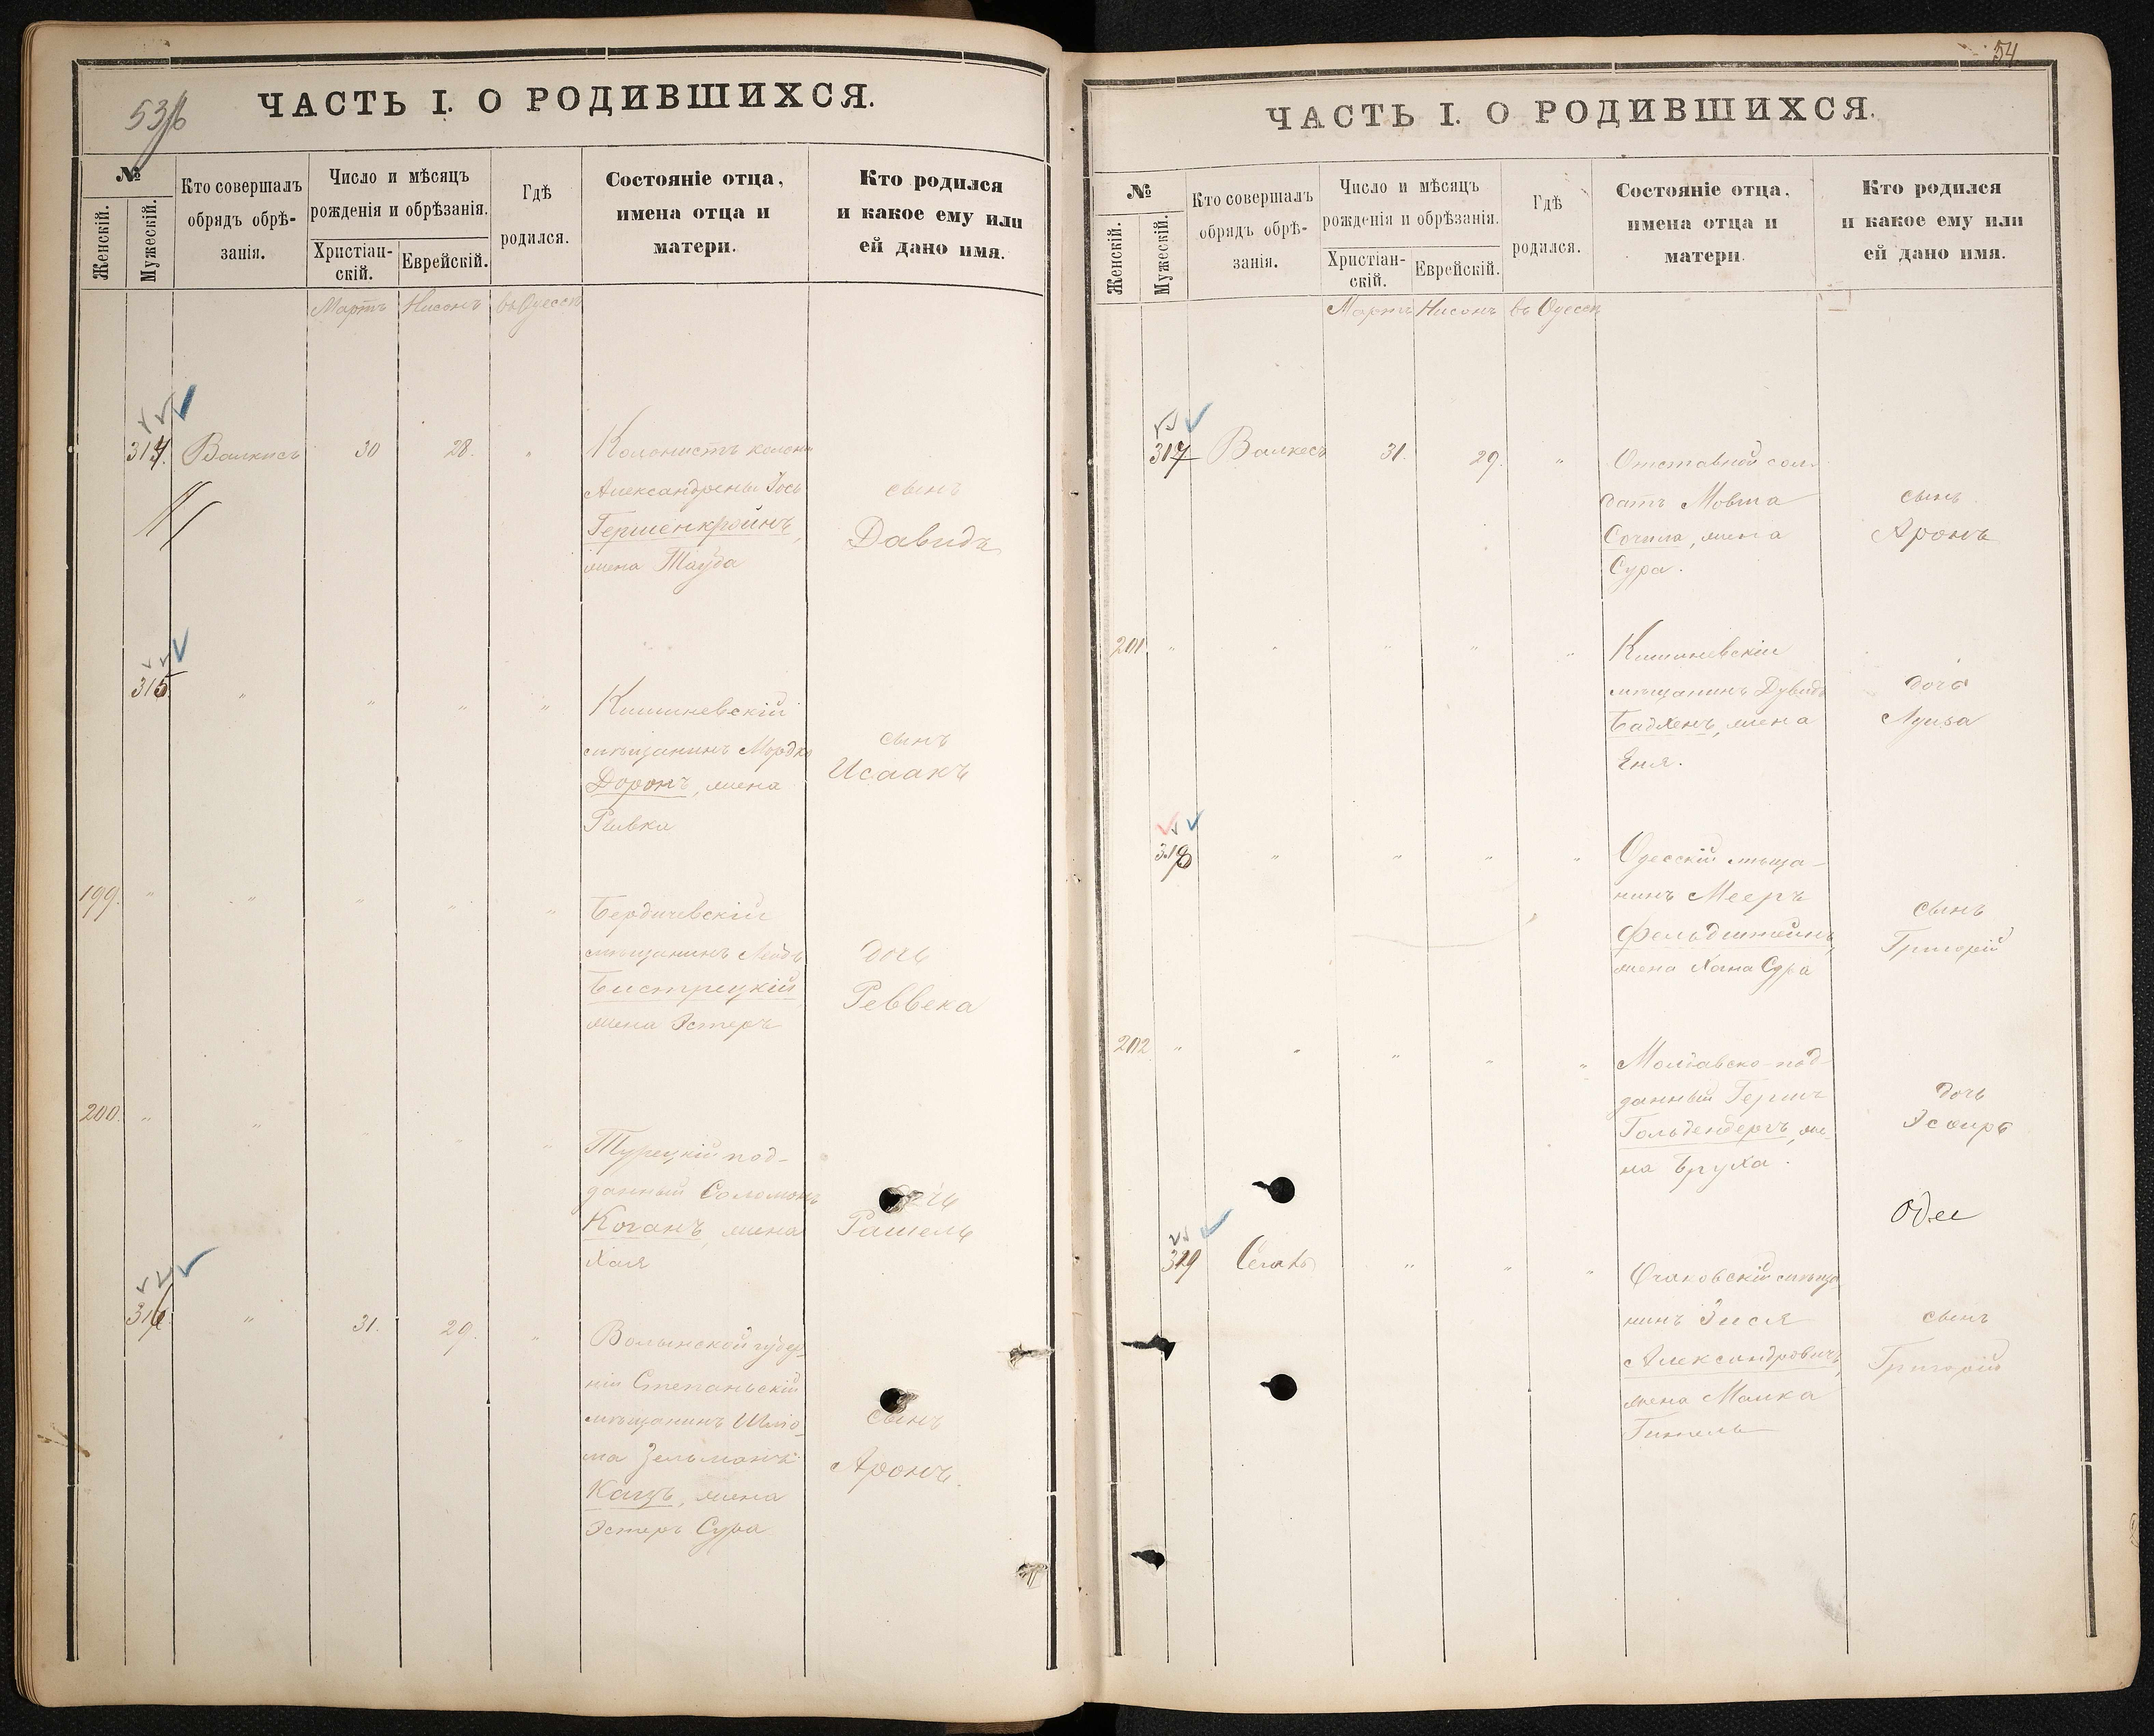 53об
ЧАСТЬ I. О РОДИВШИХСЯ.
№
Женскій.
Мужескій.
Кто совершалъ
обрядъ обрѣ-
занія.
Число и мѣсяцъ
рожденія и обрѣзанія.
Христіан-
скій.
Еврейскій.
Гдѣ
родился.
Состояніе отца,
имена отца и
матери.
Кто родился
и какое ему или
ей дано имя.
Мартъ Нисонъ въ Одессѣ
314. Валкисъ 30 28. "
Колонистъ колоніи
Александрены Іось
Гершенкройнъ,
жена Тауба
сынъ
Давидъ
315. " " " "
Кишиневскій
мѣщанинъ Мордко
Доронъ, жена
Ривка
сынъ
Исаакъ
199. " " " " "
Бердичевскій
мѣщанинъ Лейбъ
Бистрецкій
жена Эстеръ
дочь
Реввека
200. " " "
Турецкій под-
данный Соломонъ
Коганъ, жена
Хая
дочь
Рашель
316. " 31. 29. "
Волынской губер-
ніи Степаньскій
мѣщанинъ Шліо-
ма Зельманъ
Кацъ, жена
Эстеръ Сура
сынъ
Аронъ.
54.
ЧАСТЬ I. О РОДИВШИХСЯ.
№
Женскій.
Мужескій.
Кто совершалъ
обрядъ обрѣ-
занія.
Число и мѣсяцъ
рожденія и обрѣзанія.
Христіан-
скій.
Еврейскій.
Гдѣ
родился.
Состояніе отца,
имена отца и
матери.
Кто родился
и какое ему или
ей дано имя.
Мартъ Нисонъ въ Одессѣ
317 Валкесъ 31. 29. "
Отставной сол-
датъ Мовша
жена
Сура.
сынъ
Аронъ
201. " " " " "
Кишиневскій
мѣщанинъ Дувидъ
Бадхенъ, жена
Еня.
дочь
Луиза
318 " " " "
Одесскій мѣща-
нинъ Мееръ
Фельдштейнъ,
жена Хана Сура
сынъ
Григорій
202. " " " " "
Молдавско-под-
данный Гершъ
Гольденбергъ, же-
на Бруха.
дочь
Эсфирь
319 Сегалъ " " "
Очаковскій мѣща
нинъ Зися
Александровичъ,
жена Малка
сынъ
Григорій